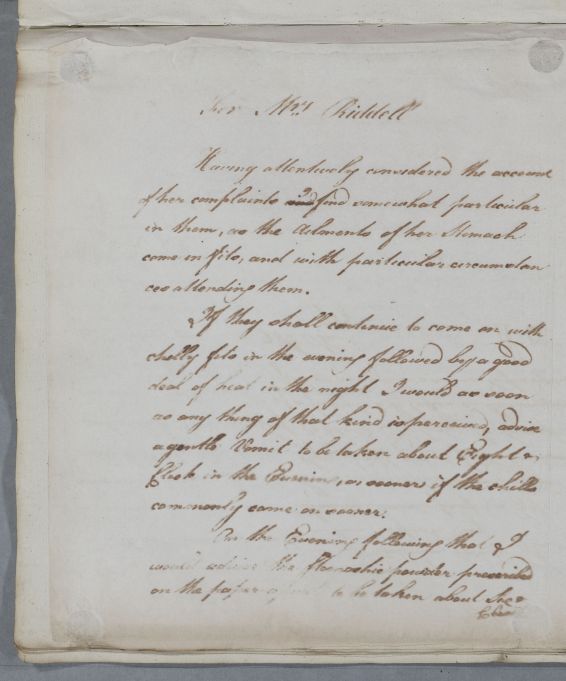 For Mrs Riddell
Having attentively considered the account
of her complaints find somewhat particular
in them, as the Ailments of her Stomach
come in fits, and with particular circumstan
ces attending them.
If they shall continue to come on with
chilly fits in the evening followed by a good
deal of heat in the night I would as soon
as any thing of that kind is perceived, advise
a gentle Vomit to be taken about Eight o
Clock in the Evening, or sooner if the chills
commonly come on sooner.
On the Evening following that I
would advise the powder prescribed
on the paper to be taken about the